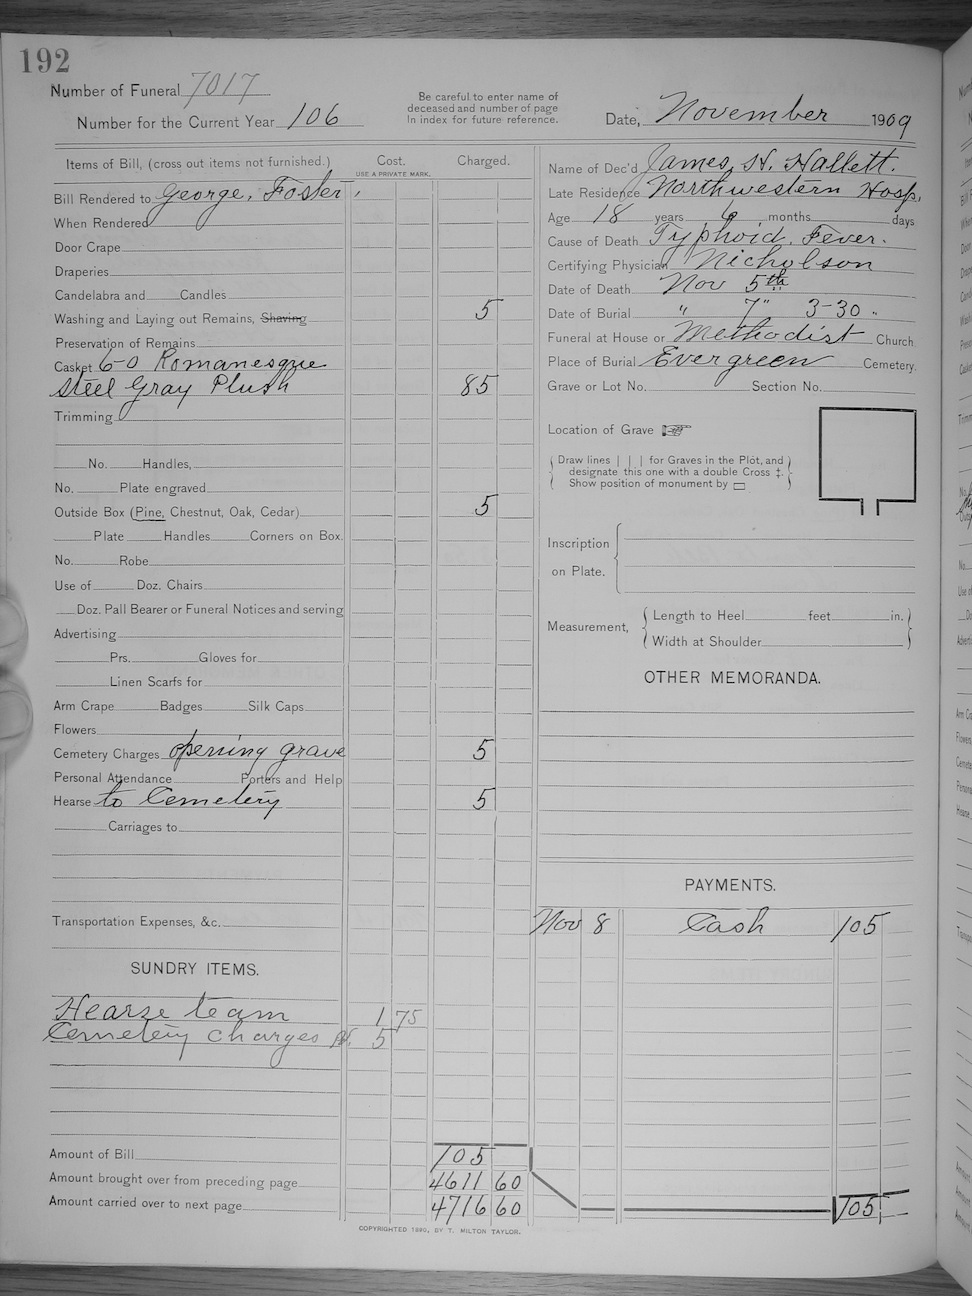 192
Number of Funeral 7017
Number for the Current Year 106
Be careful to enter name of
deceased and number of page
in index for future reference.
Date, November 1909
Items of Bill, (cross out items not furnished.) Cost. Charged.
USE A PRIVATE MARK.
Bill Rendered to George. Foster
When Rendered
Door Crape
Draperies
Candelabra and Candles
Washing and Laying out Remains, Shaving 5
Preservation of Remains
Casket 6-0 Romanesque
Steel Gray Plush 85
Trimming
No. Handles,
No. Plate engraved
Outside Box (Pine, Chestnut, Oak, Cedar) 5
Plate Handles Corners on Box.
No. Robe
Use of Doz. Chairs
Doz. Pall Bearer or Funeral Notices and serving
Advertising
Prs. Gloves for
Linen Scarfs for
Arm Crape Badges Silk Caps
Flowers
Cemetery Charges opening grave 5
Personal Attendance Porters and Help
Hearse to Cemetery 5
Carriages to
Transportation Expenses, &c.
SUNDRY ITEMS.
Hearse team 1 75
Cemetery charges 5
Amount of Bill 105
Amount brought over from preceding page 4611 60
Amount carried over to next page 4716 60
Name of Dec'd James, H. Hallett.
Late Residence Northwestern Hosp.
Age 18 years 6 months days
Cause of Death Typhoid. Fever.
Certifying Physician Nicholson
Date of Death Nov 5th
Date of Burial " 7" 3-30 "
Funeral at House or Methodist Church.
Place of Burial Evergreen Cemetery.
Grave or Lot No. Section No.
Location of Grave
Draw lines | | | for Graves in the Plot, and
designate this one with a double Cross ‡.
Show position of monument by ▭
Inscription
on Plate.
Measurement, Length to Heel feet in.
Width at Shoulder
OTHER MEMORANDA.
PAYMENTS.
Nov 8 Cash 105
105
COPYRIGHTED 1890, BY T. MILTON TAYLOR.